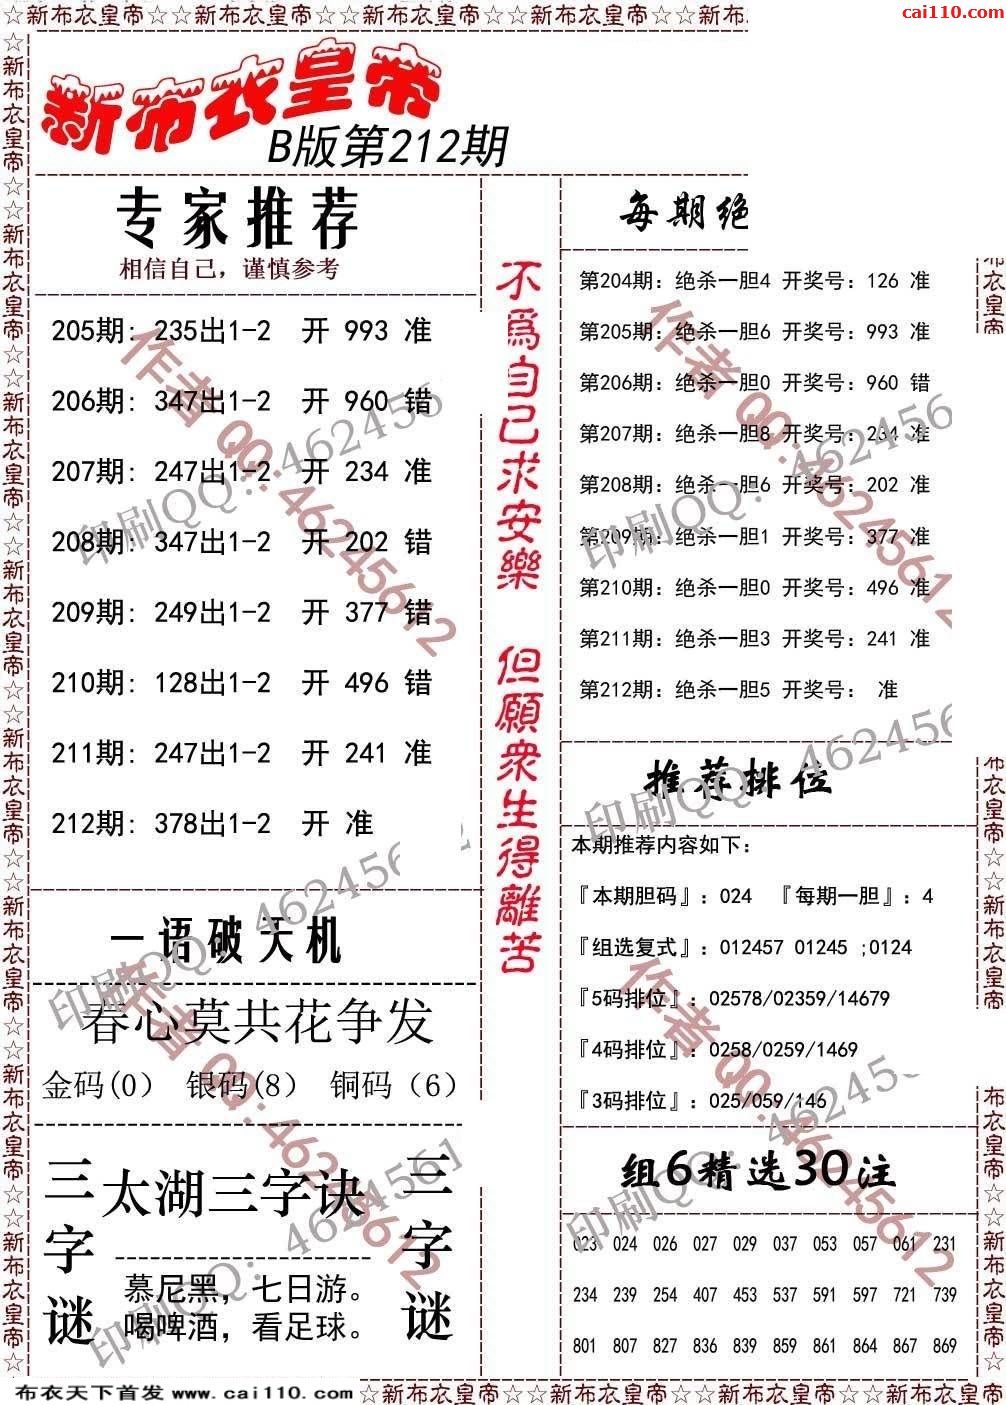 ☆新布衣皇帝☆☆新布衣皇帝☆☆新布衣皇帝☆☆新布衣皇帝☆☆新布
cai110.com
新布衣皇帝
B版第212期
专家推荐
相信自己，谨慎参考
205期: 235出1-2 开 993 准
206期: 347出1-2 开 960 错
207期: 247出1-2 开 234 准
208期: 347出1-2 开 202 错
209期: 249出1-2 开 377 错
210期: 128出1-2 开 496 错
211期: 247出1-2 开 241 准
212期: 378出1-2 开 准
一语破天机
春心莫共花争发
金码(0) 银码(8) 铜码（6）
三字谜
太湖三字诀
慕尼黑，七日游。
喝啤酒，看足球。
三字谜
不爲自己求安樂 但願衆生得離苦
每期绝
第204期: 绝杀一胆4 开奖号: 126 准
第205期: 绝杀一胆6 开奖号: 993 准
第206期: 绝杀一胆0 开奖号: 960 错
第207期: 绝杀一胆8 开奖号: 234 准
第208期: 绝杀一胆6 开奖号: 202 准
第209期: 绝杀一胆1 开奖号: 377 准
第210期: 绝杀一胆0 开奖号: 496 准
第211期: 绝杀一胆3 开奖号: 241 准
第212期: 绝杀一胆5 开奖号: 准
推荐排位
本期推荐内容如下:
『本期胆码』: 024 『每期一胆』: 4
『组选复式』: 012457 01245 ;0124
『5码排位』: 02578/02359/14679
『4码排位』: 0258/0259/1469
『3码排位』: 025/059/146
组6精选30注
023 024 026 027 029 037 053 057 061 231
234 239 254 407 453 537 591 597 721 739
801 807 827 836 839 859 861 864 867 869
作者 QQ:46245612
印刷QQ: 462456
作者 QQ:46245612
印刷QQ: 462456
印刷QQ: 462456
作者 QQ:46245612
印刷QQ: 4624561
印刷QQ: 462456
作者 QQ:46245612
印刷QQ: 46245
布衣天下首发 www.cai110.com
☆新布衣皇帝☆☆新布衣皇帝☆☆新布衣皇帝☆☆新布衣皇帝☆